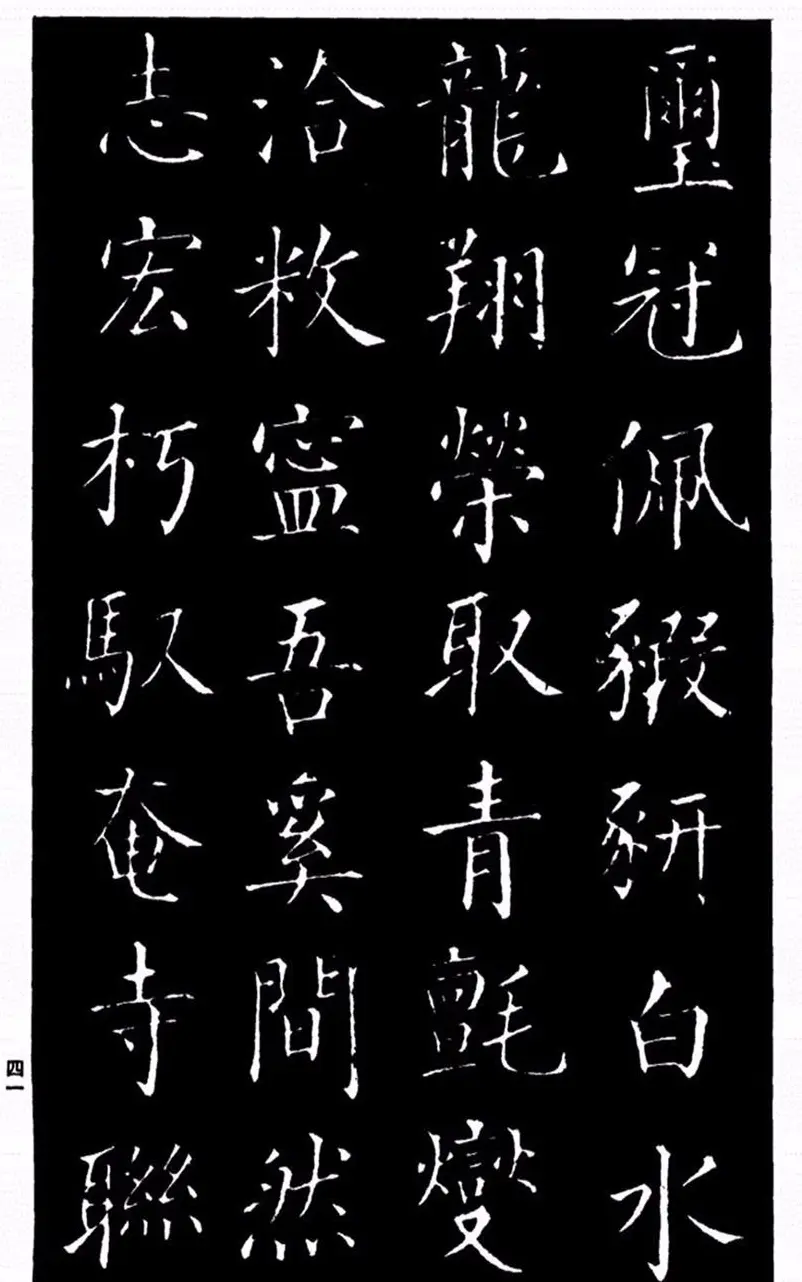 璽冠佩豭豜白水
龍翔榮取青氈燮
洽敉寍吾奚間然
志宏朽馭奄寺聯
四一